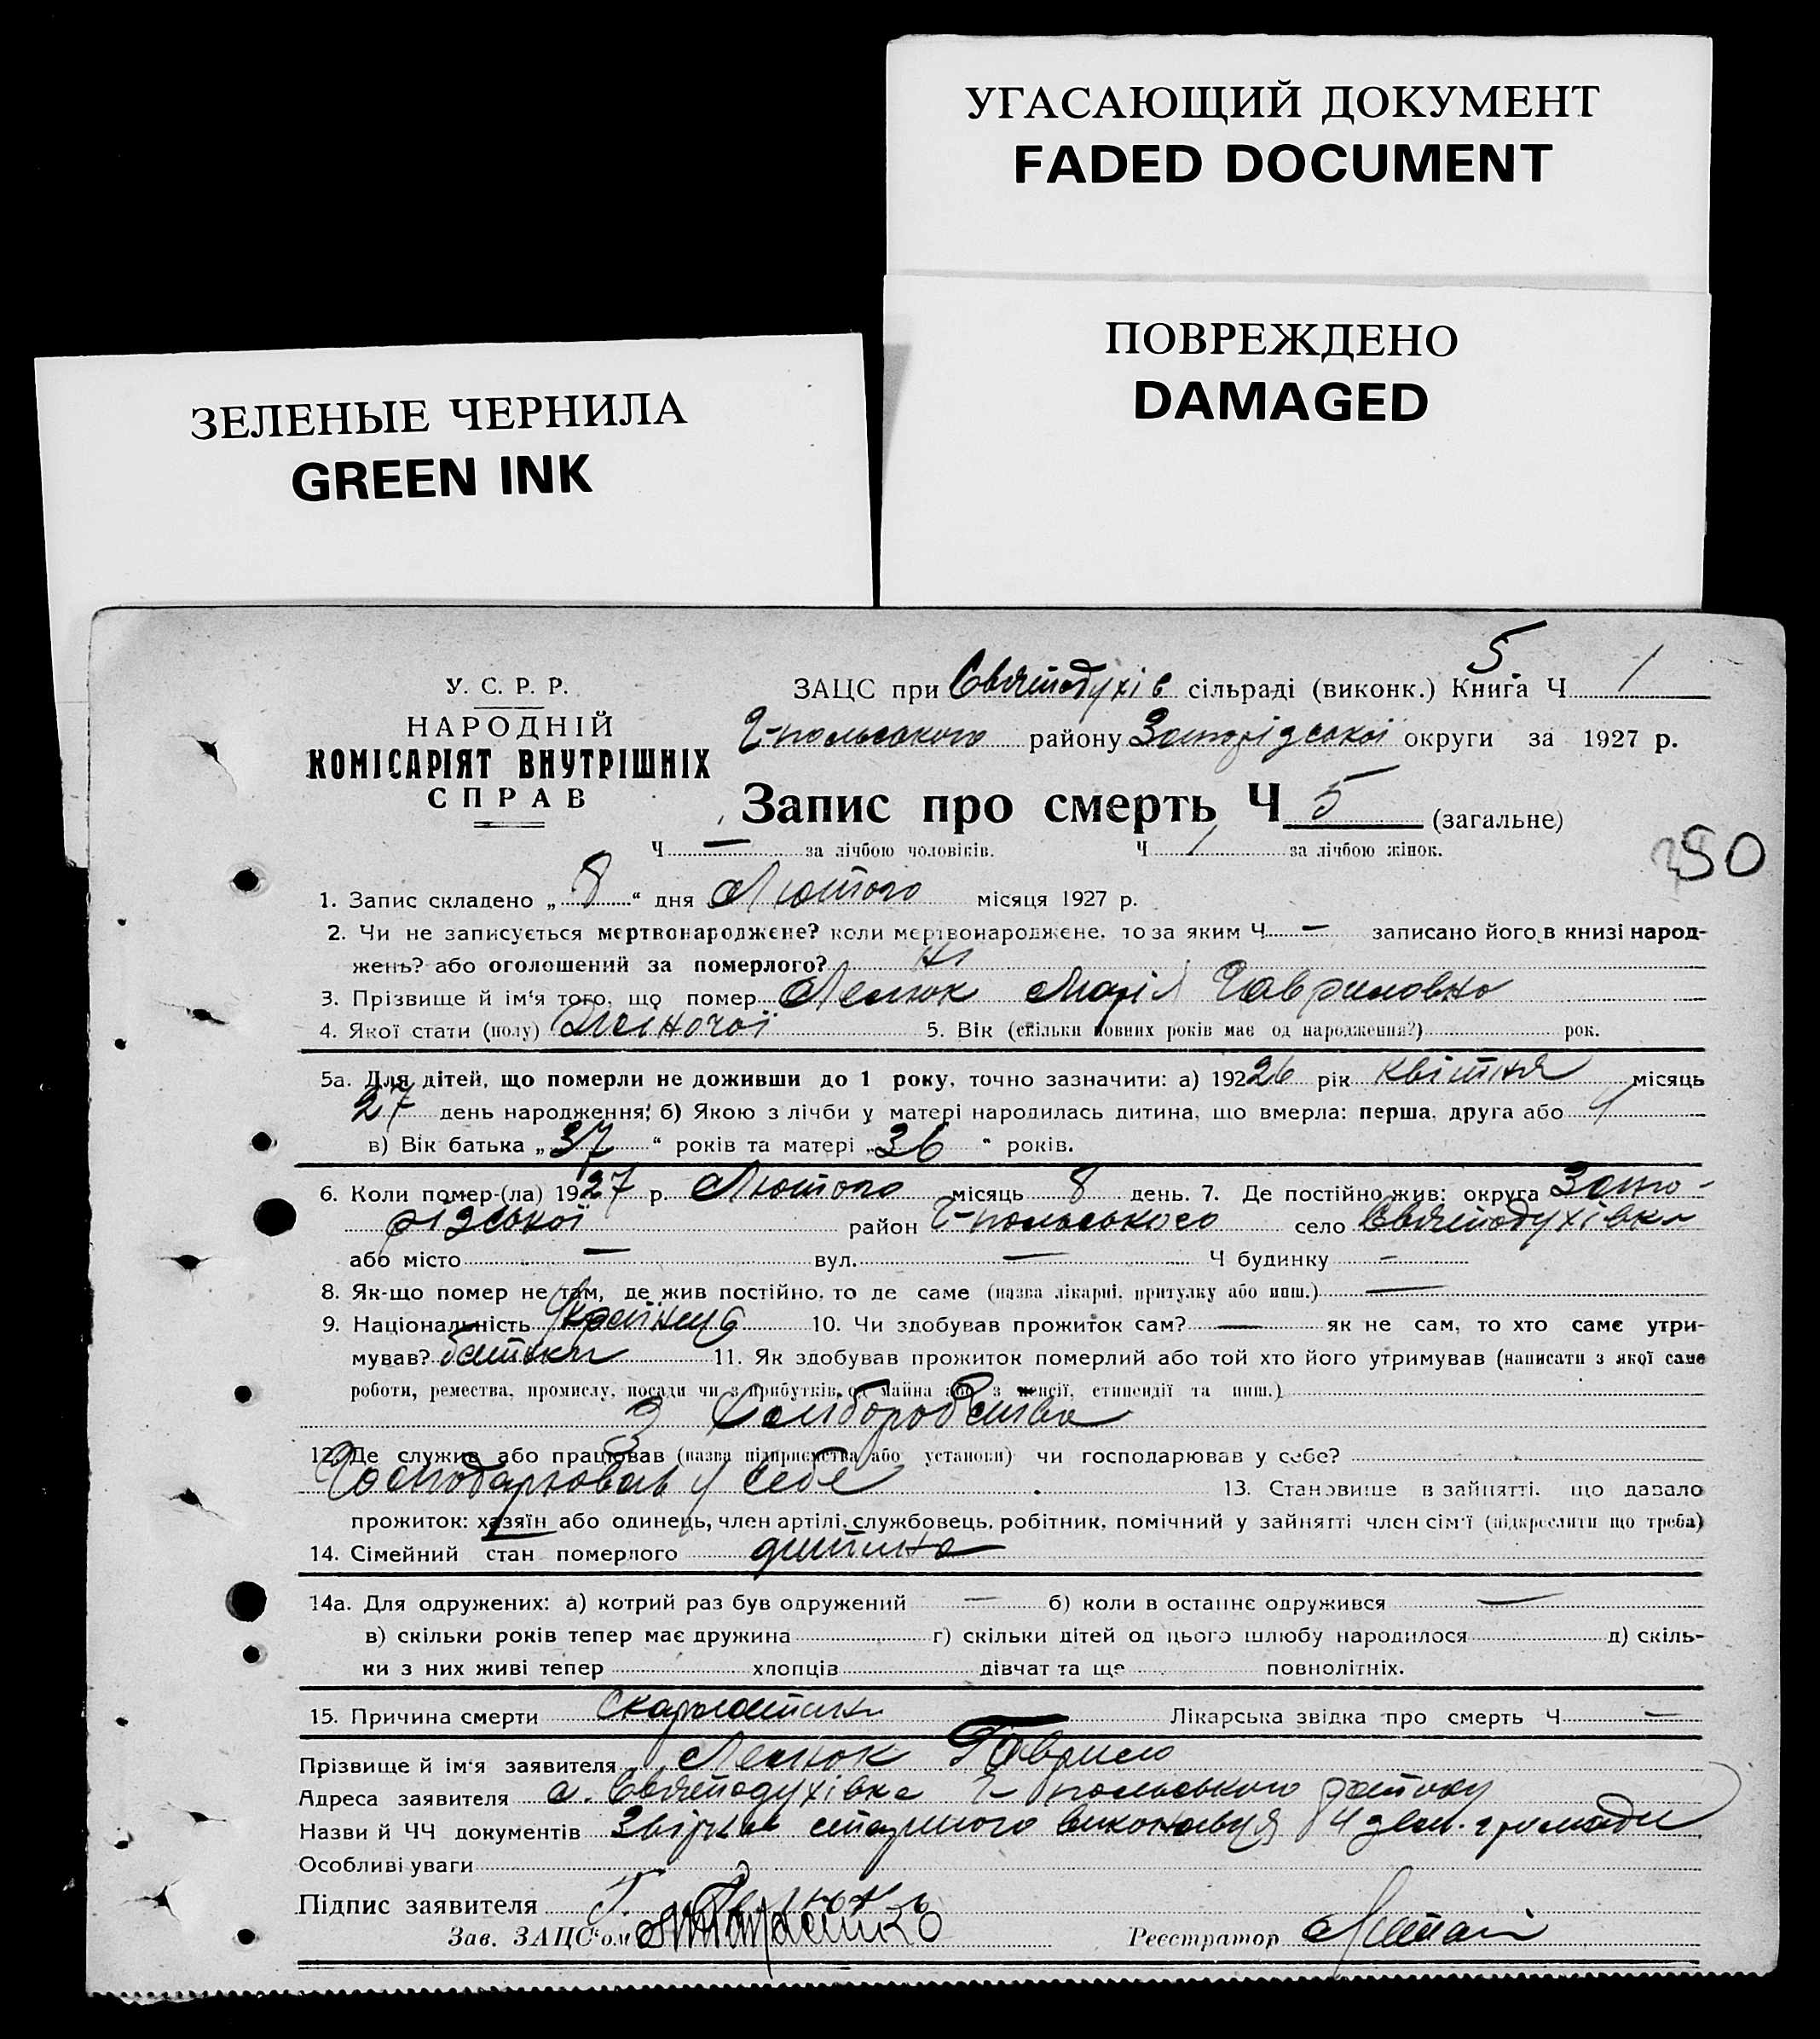 УГАСАЮЩИЙ ДОКУМЕНТ
FADED DOCUMENT
ПОВРЕЖДЕНО
DAMAGED
ЗЕЛЕНЫЕ ЧЕРНИЛА
GREEN INK
У. С. Р. Р.
НАРОДНІЙ
КОМІСАРІЯТ ВНУТРІШНІХ
СПРАВ
5
ЗАЦС при Святодухів сільраді (виконк.) Книга Ч 1
Г-польського району Запорізської округи за 1927 р.
Запис про смерть Ч 5 (загальне)
Ч — за лічбою чоловіків. Ч 1 за лічбою жінок.
50
1. Запис складено „ 8 “ дня Лютого місяця 1927 р.
2. Чи не записується мертвонароджене? коли мертвонароджене, то за яким Ч — записано його в книзі народ-
жень? або оголошений за померлого? Ні
3. Прізвище й ім‘я того, що помер Марія Гавриловна
4. Якої стати (полу) Жіночої 5. Вік (скільки повних років має од народження?) рок.
5а. Для дітей, що померли не доживши до 1 року, точно зазначити: а) 192 26 рік квітня місяць
27 день народження; б) Якою з лічби у матері народилась дитина, що вмерла: перша, друга або
в) Вік батька „ 37 “ років та матері „ 36 “ років.
6. Коли помер-(ла) 19 27 р. Лютого місяць 8 день. 7. Де постійно жив: округа Запо-
різської район Г-польського село Святодухівка
або місто — вул. — Ч будинку —
8. Як-що помер не там, де жив постійно, то де саме (назва лікарні, притулку або инш.) —
9. Національність Українц 10. Чи здобував прожиток сам? — як не сам, то хто саме утри-
мував? батьки 11. Як здобував прожиток померлий або той хто його утримував (написати з якої саме
роботи, ремества, промислу, посади чи з прибутків од майна або з пенсії, стипендії та инш.)
З Хліборобства
12. Де служив або працював (назва підприємства або установи) чи господарював у себе?
Господарював у себе 13. Становище в зайнятті, що давало
прожиток: хазяїн або одинець, член артілі, службовець, робітник, помічний у зайнятті член сім‘ї (підкреслити що треба)
14. Сімейний стан померлого дитина
14а. Для одружених: а) котрий раз був одружений — б) коли в останнє одружився —
в) скільки років тепер має дружина г) скільки дітей од цього шлюбу народилося д) скіль-
ки з них живі тепер хлопців дівчат та ще повнолітніх.
15. Причина смерти Скарлатина Лікарська звідка про смерть Ч —
Прізвище й ім‘я заявителя Гаврило
Адреса заявителя с. Святодухівка Г-польського району
Назви й ЧЧ документів старшого виконавця 4 зем. громади
Особливі уваги
Підпис заявителя Г.
Зав. ЗАЦС‘ом
Реєстратор